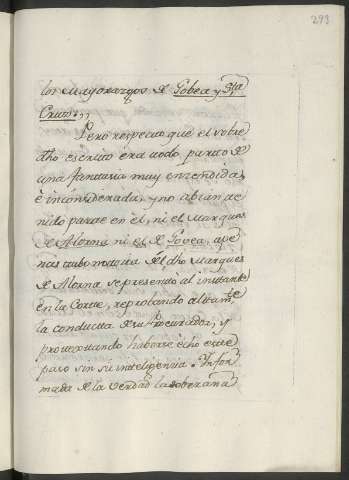 293
los Mayorazgos de Gobea y Sta
Cruz.,,
Pero respecto que el sobre
dho escrito era todo parto de
una fantasia muy encendida,
è inconsiderada, y no abian te
nido parte en el, ni el Marques
de Alorna ni el de Govea, ape
nas tubo noticia el dho Marques
de Alorna se presentó al instante
en la Corte, reprobando altamte
la conducta de su Procurador, y
protextando haberse echo este
paso sin su inteligencia. Infor
mada de la verdad la soberana